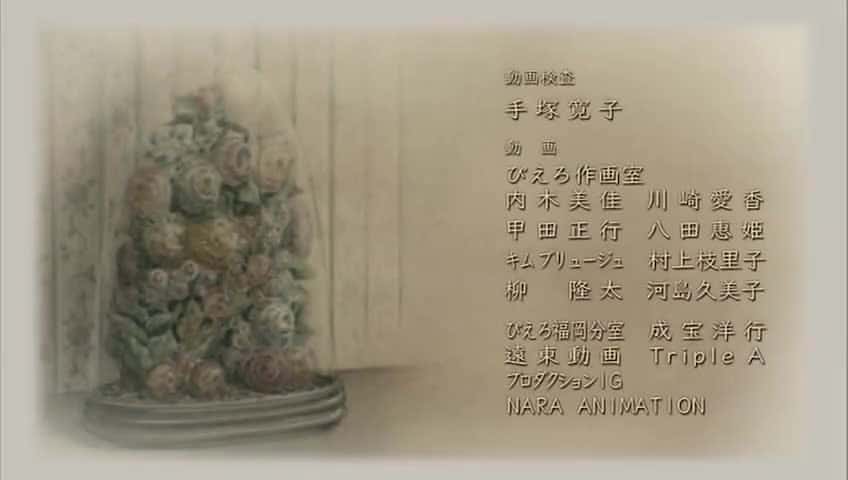 動画検査
手塚寛子
動画
ぴえろ作画室
内木美佳　川崎愛香
甲田正行　八田恵姫
キムブリュージュ　村上枝里子
柳　隆太　河島久美子
ぴえろ福岡分室　成宝洋行
遠東動画　Triple A
プロダクションIG
NARA ANIMATION